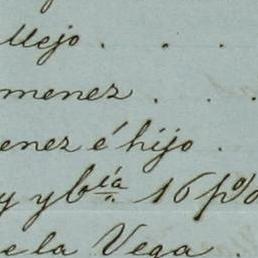 llejo . . .
menez . . .
enez é hijo .
y y bᵉíᵃ 16 p%
e la Vega .